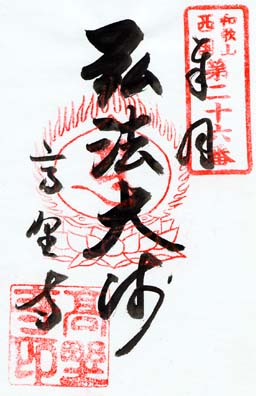 和歌山
西国
第二十六番
奉拝
弘法大師
高野寺
高野
寺印